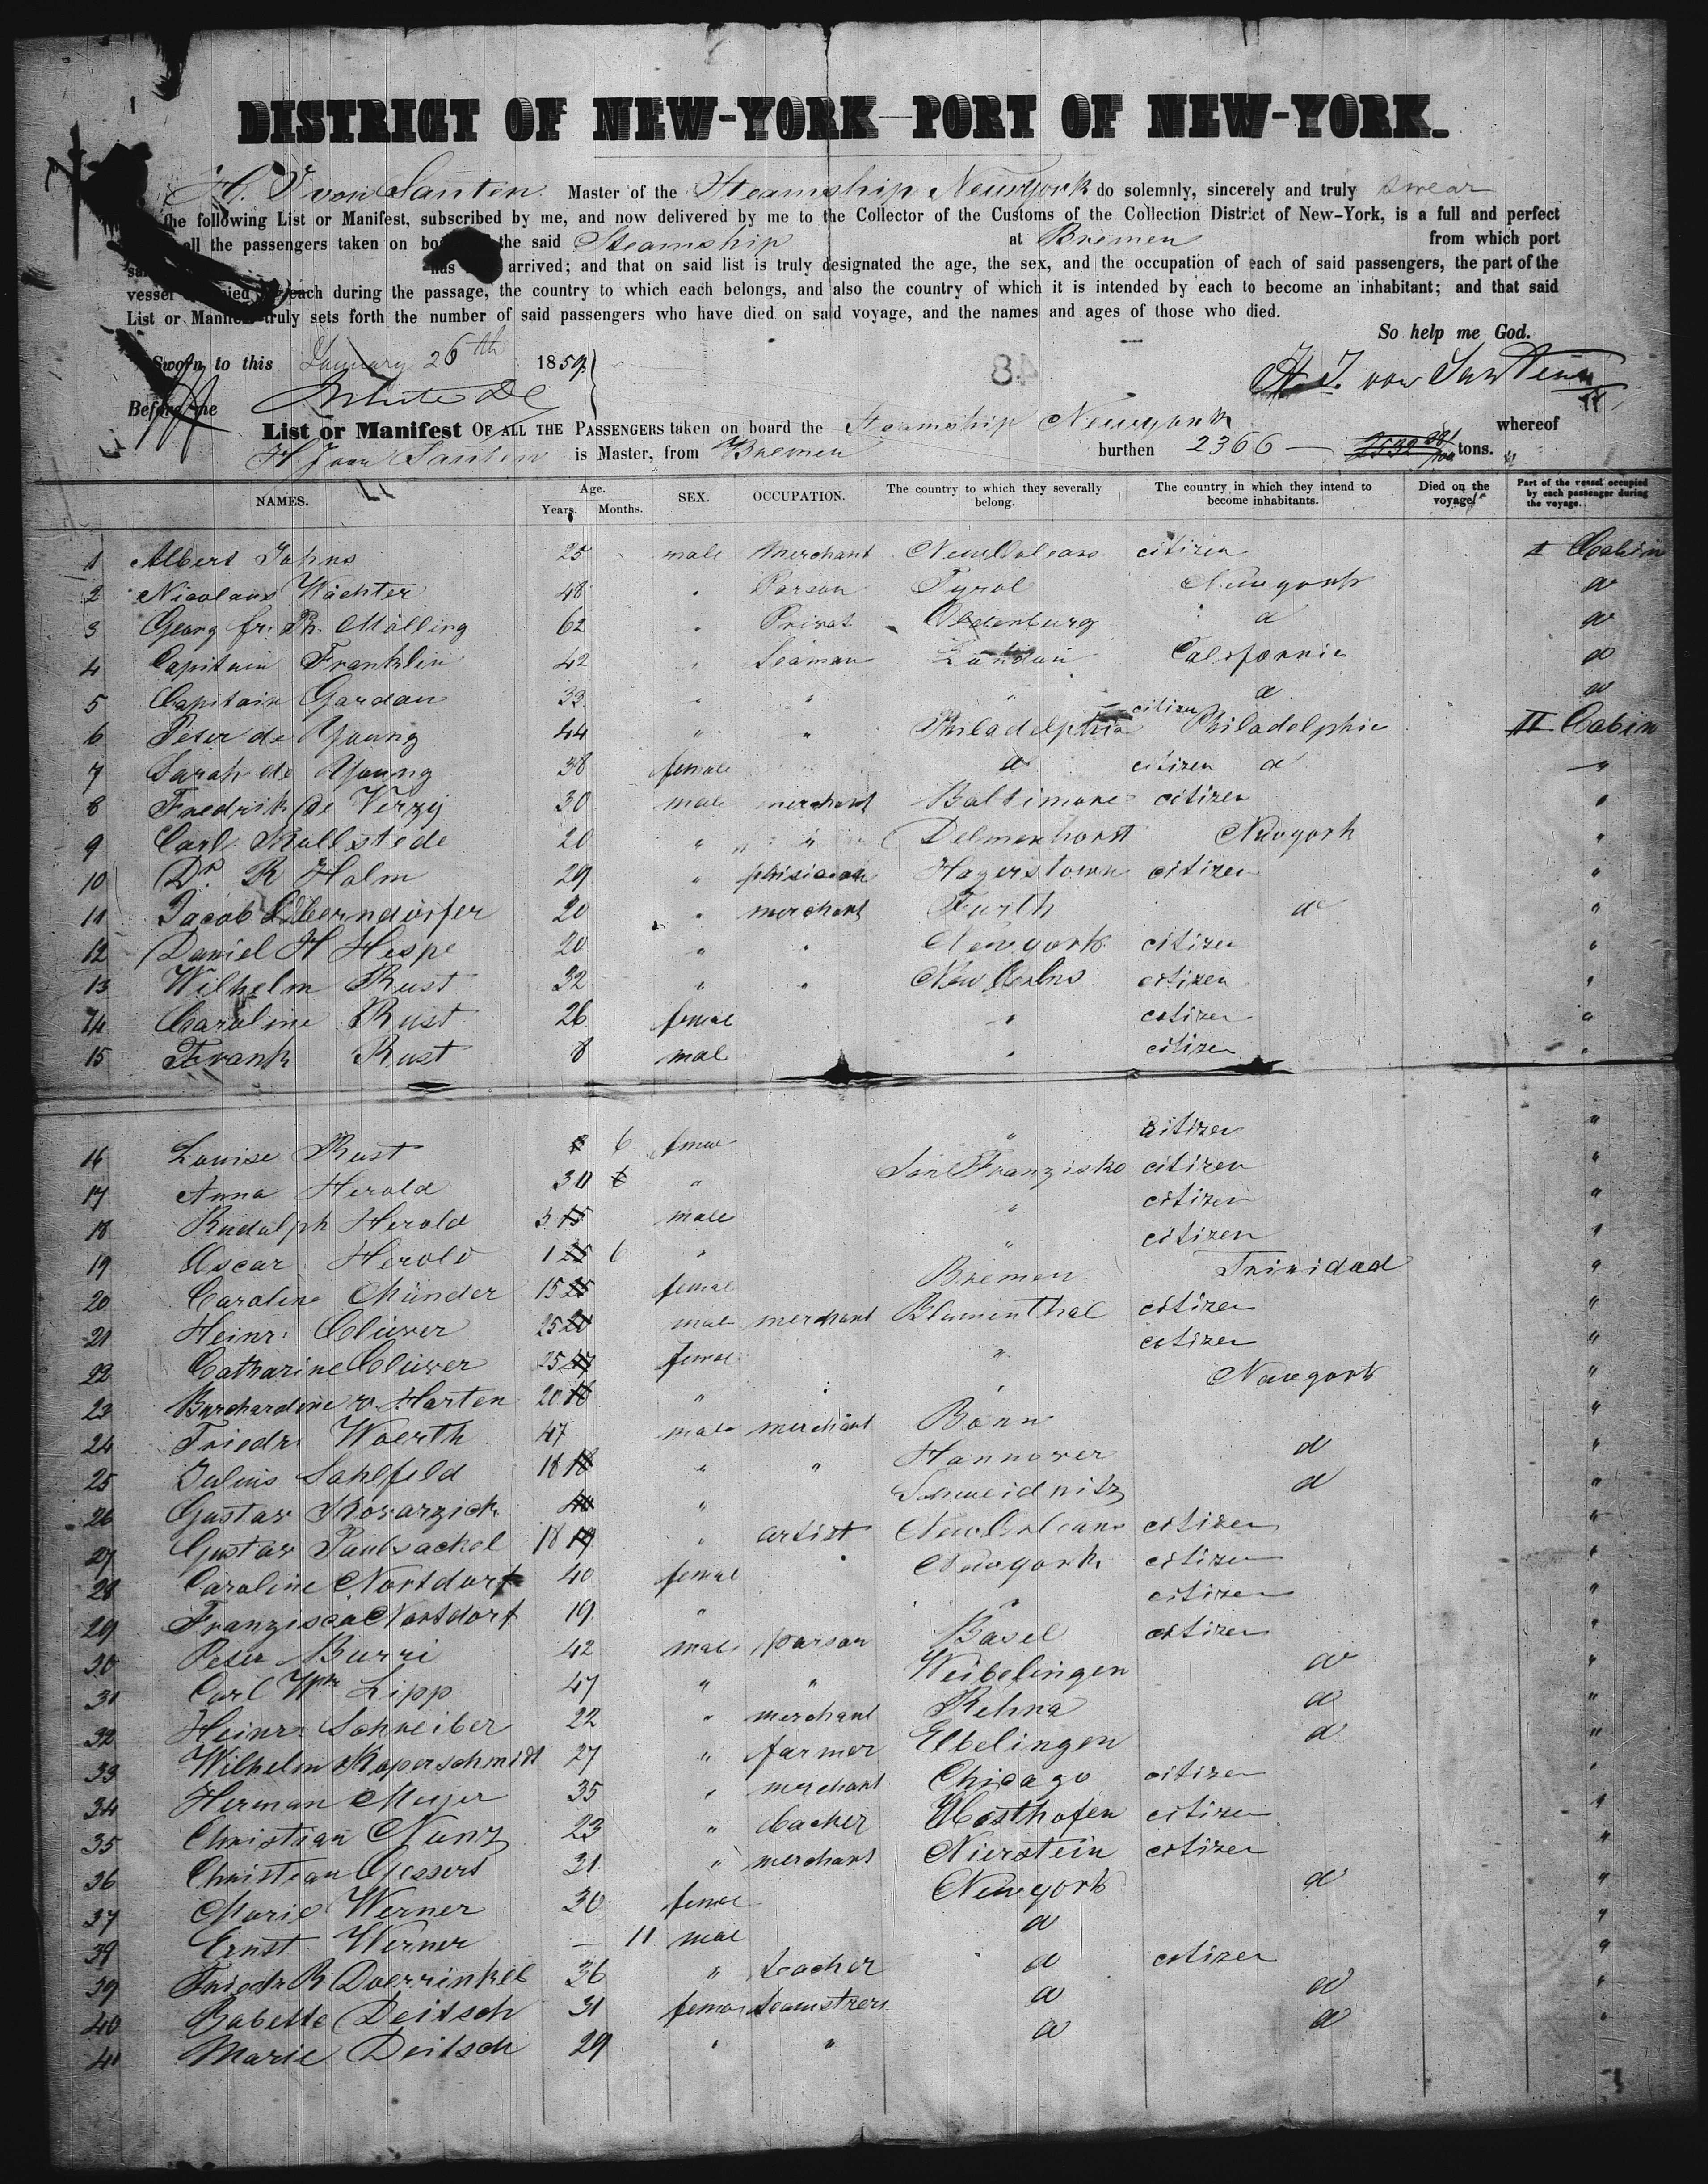 DISTRICT OF NEW-YORK—PORT OF NEW-YORK.
H. J. von Santen Master of the Steamship Newyork do solemnly, sincerely and truly swear
the following List or Manifest, subscribed by me, and now delivered by me to the Collector of the Customs of the Collection District of New-York, is a full and perfect
all the passengers taken on board the said Steamship at Bremen from which port
has arrived; and that on said list is truly designated the age, the sex, and the occupation of each of said passengers, the part of the
vessel each during the passage, the country to which each belongs, and also the country of which it is intended by each to become an inhabitant; and that said
List or Manifest truly sets forth the number of said passengers who have died on said voyage, and the names and ages of those who died.
So help me God.
Sworn to this January 26th 1859.
48
H. J. von Santen
Before me White DC
List or Manifest OF ALL THE PASSENGERS taken on board the Steamship Newyork whereof
H J von Santen is Master, from Bremen burthen 2366 — tons.
NAMES. Age. Years. Months. SEX. OCCUPATION. The country to which they severally belong. The country in which they intend to become inhabitants. Died on the voyage. Part of the vessel occupied by each passenger during the voyage.
1 Albert Johns 25 male Merchant NewOrleans citizen I Cabin
2 Nicolaus Wächter 48 " Parson Tyrol Newyork d
3 Georg fr. Ph. Mölling 62 " Privat Oldenburg d d
4 Capitain Franklin 42 " Seaman London California d
5 Capitain Gardan 33 " " " d d
6 Peter de Young 44 " " Philadelphia citizen Philadelphia II Cabin
7 Sarah de Young 38 female d citizen d "
8 Fredrik de Verzy 30 male merchant Baltimore citizen "
9 Carl Kallstede 20 " " Delmenhorst Newyork "
10 Dr. R Halm 29 " phisician Hagerstown citizen "
11 Jacob Oberndorfer 20 " merchant Furth d "
12 Daniel H Hespe 20 " " Newyork citizen "
13 Wilhelm Rust 32 " " New Orlns citizen "
14 Caroline Rust 26 femal " citizen "
15 Frank Rust 8 mal " citizen "
16 Louise Rust 6 femal " citizen "
17 Anna Herold 30 " San Franzisko citizen "
18 Rudolph Herold 3 male " citizen "
19 Oscar Herold 1 6 " " citizen "
20 Caroline Münder 15 femal Bremen Trinidad "
21 Heinr. Clüver 25 mal merchant Blumenthal citizen "
22 Catharine Clüver 25 femal " citizen "
23 Burchardine v. Harten 20 " " Newyork "
24 Friedr. Woerth 47 male merchant Bonn "
25 Julius Sahlfeld 18 " " Hannover d "
26 Gustav Kovarzick " Schweidnitz d "
27 Gustav Paulsackel 18 " artist NewOrleans citizen "
28 Caroline Nortdorf 40 femal Newyork citizen "
29 Franzisca Nortdorf 19 " " citizen "
30 Peter Burri 42 male parson Basel citizen "
31 Carl Wm Lipp 47 " " Weibelingen d "
32 Heinr. Schreiber 22 " merchant Rehna d "
33 Wilhelm Koperschmidt 27 " farmer Ebelingen d "
34 Herman Meyer 35 " merchant Chicago citizen "
35 Christian Nunz 23 " backer Westhofen citizen "
36 Christean Gessert 31 " merchant Nierstein citizen "
37 Marie Werner 30 femal Newyork d "
39 Ernst Werner — 11 mal d "
39 Friedr R Doerrinkel 36 " teacher d citizen "
40 Babette Deitsch 31 femal seamstress d d "
41 Marie Deitsch 29 " " d d